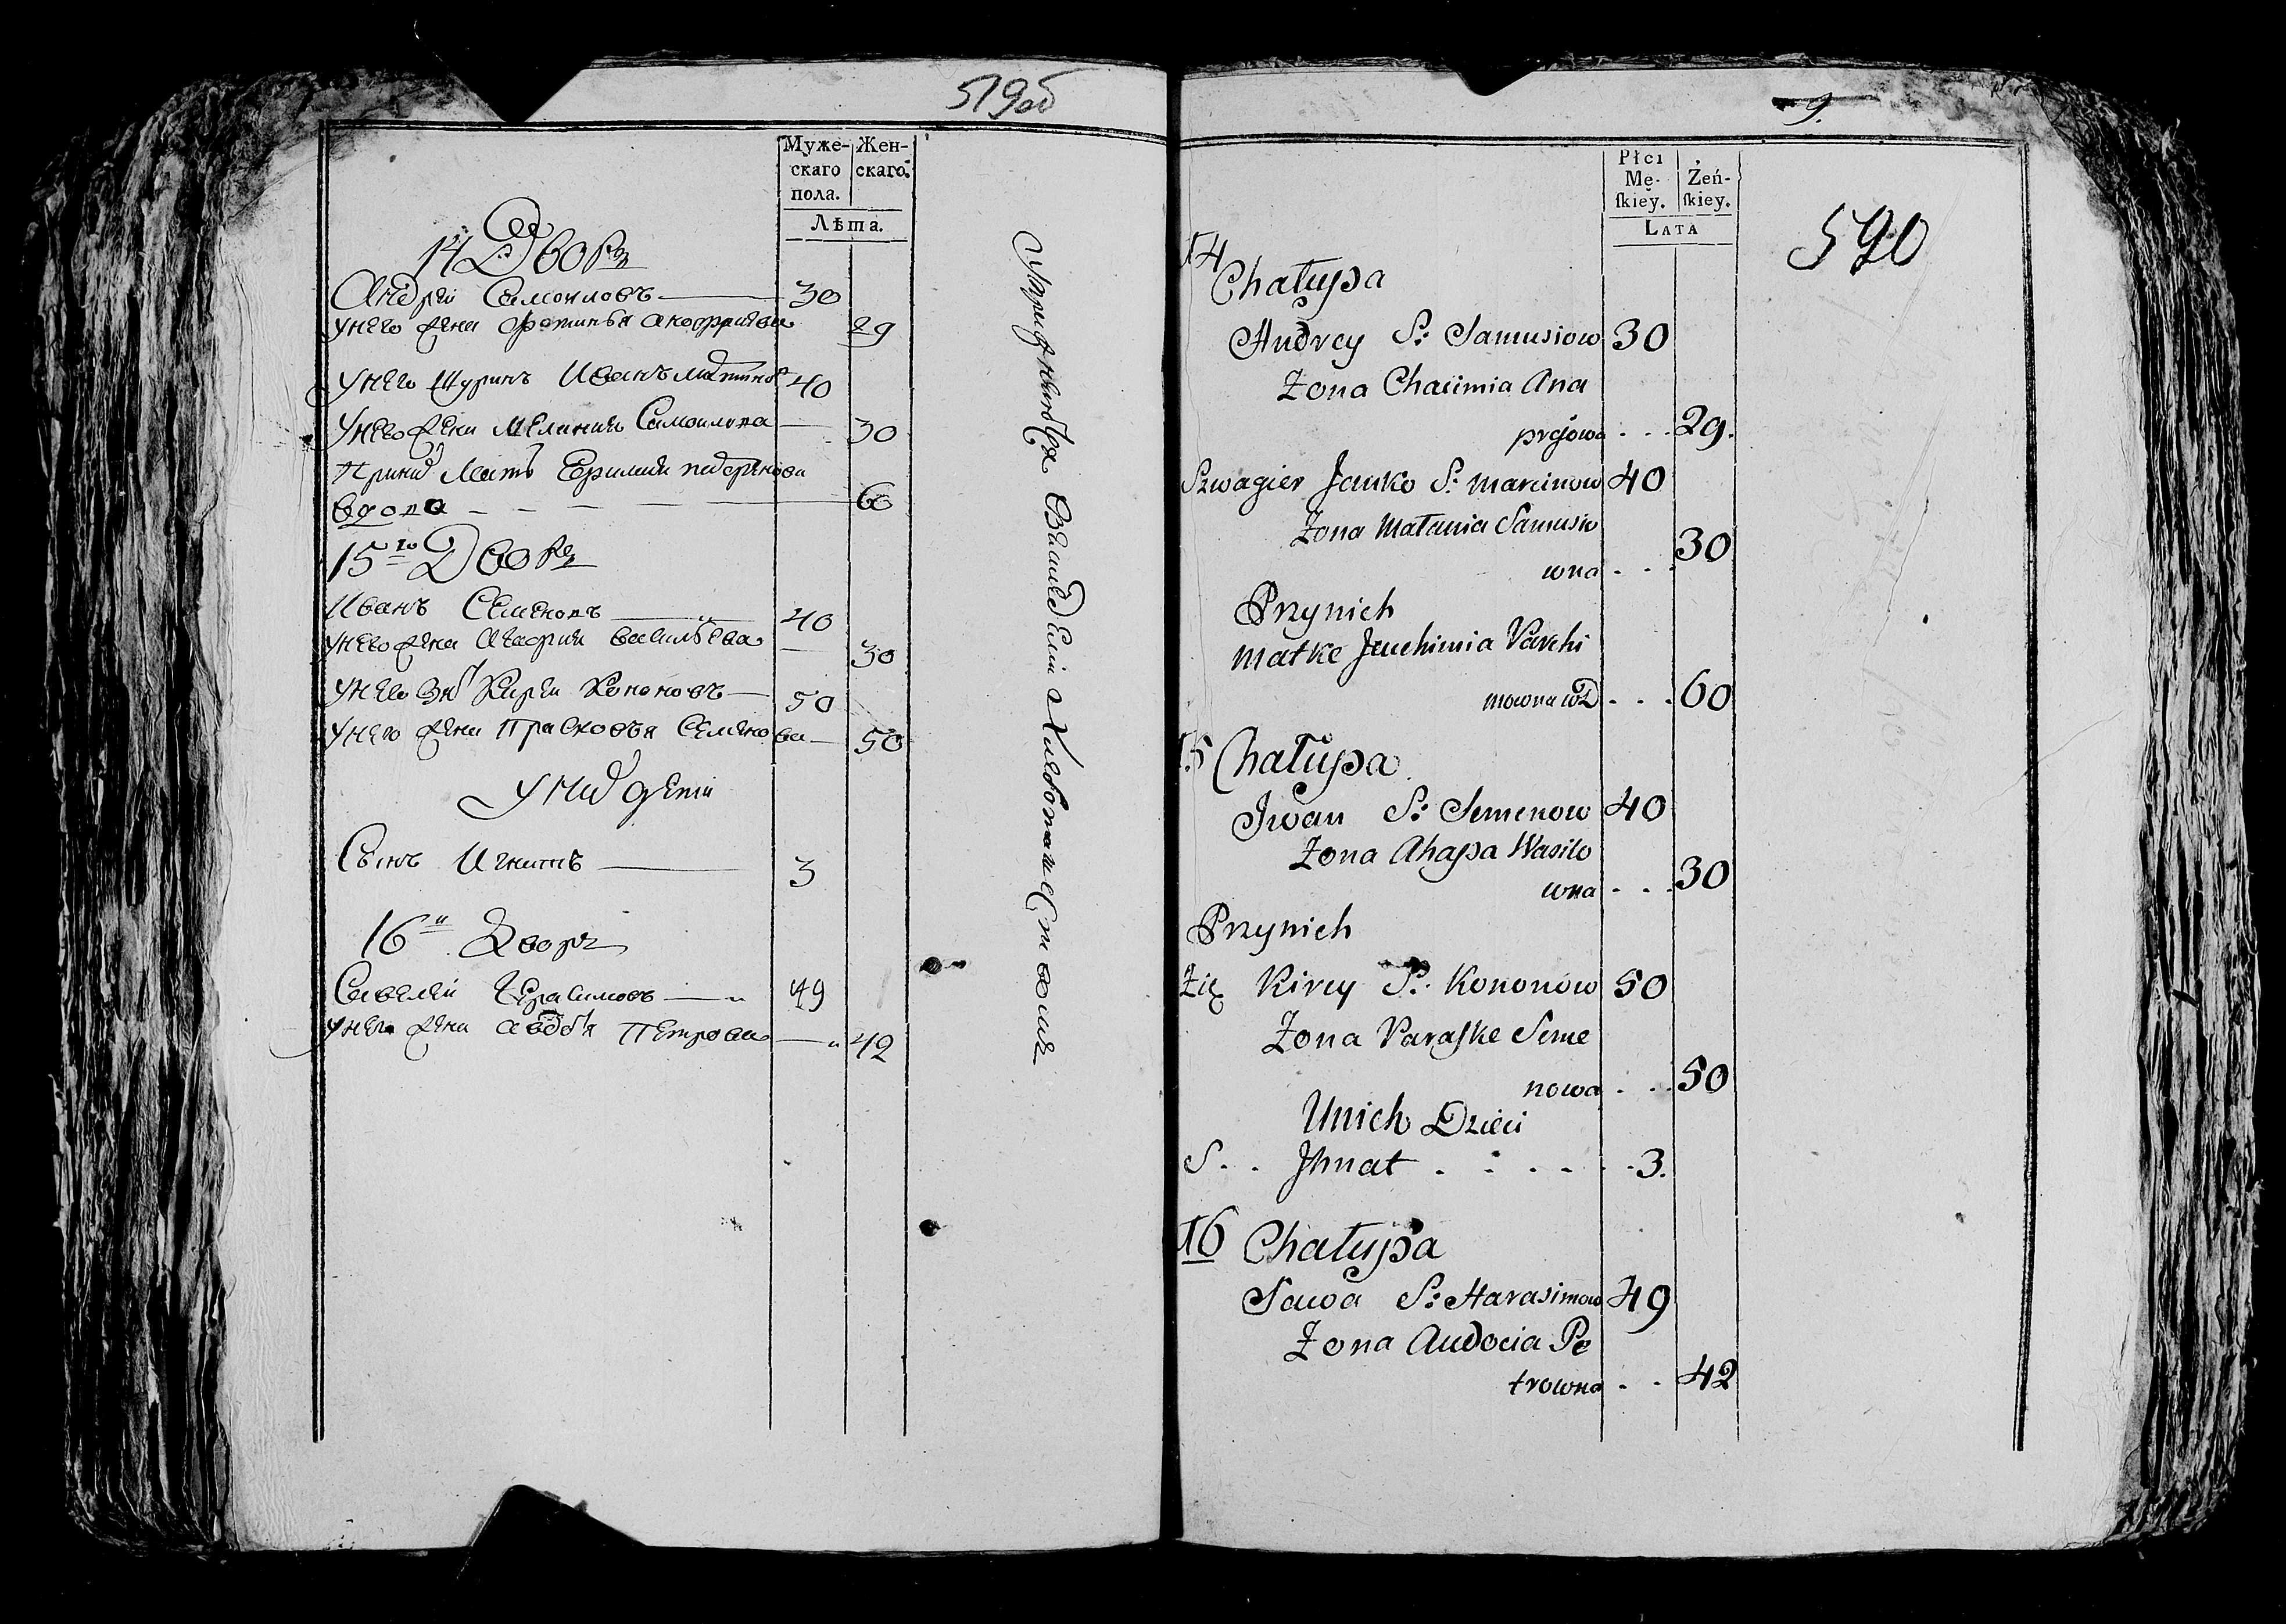 519об
Муже-
скаго
пола.
Жен-
скаго.
Лѣта.
14 Дворъ
Андрей Самоиловъ 30
у него жена Фотинья Анофриева 29
у него шуринъ Иванъ 40
у него жена Мелания Самоилова 30
При них мать
вдова 60
15го Дворъ
Иванъ Семеновъ 40
у него жена Агафия Васильева 30
у него зять Кирей Кононовъ 50
у него жена Прасковья Семенова 50
у них дети
Сынъ Игнатъ 3
16й Дворъ
Савелей Герасимовъ 49
у него жена Авдотья Петрова 42
9.
590
Płci
Mę-
ſkiey.
Żeń-
ſkiey.
Lata
14
Chałupa
Andrey S: Samusiow 30
Żona Chacimia Ana
prejowa . . . 29.
Szwagier Janko S: Marcinow 40
Żona Małania Samusio
wna . . . 30
Przynich
Matke Jeuchimia Parchi
mowna wD . . . 60
15 Chałupa
Jwan S: Semenow 40
Żona Ahapa Wasilo
wna . . . 30
Przynich
Zię Kirey S: Kononow 50
Żona Paraſke Seme
nowa . . . 50
Unich Dzieci
S . . Jhnat . . . . . 3.
16 Chałupa
Sawa S: Harasimow 49
Żona Audocia Pe
trowna . . 42